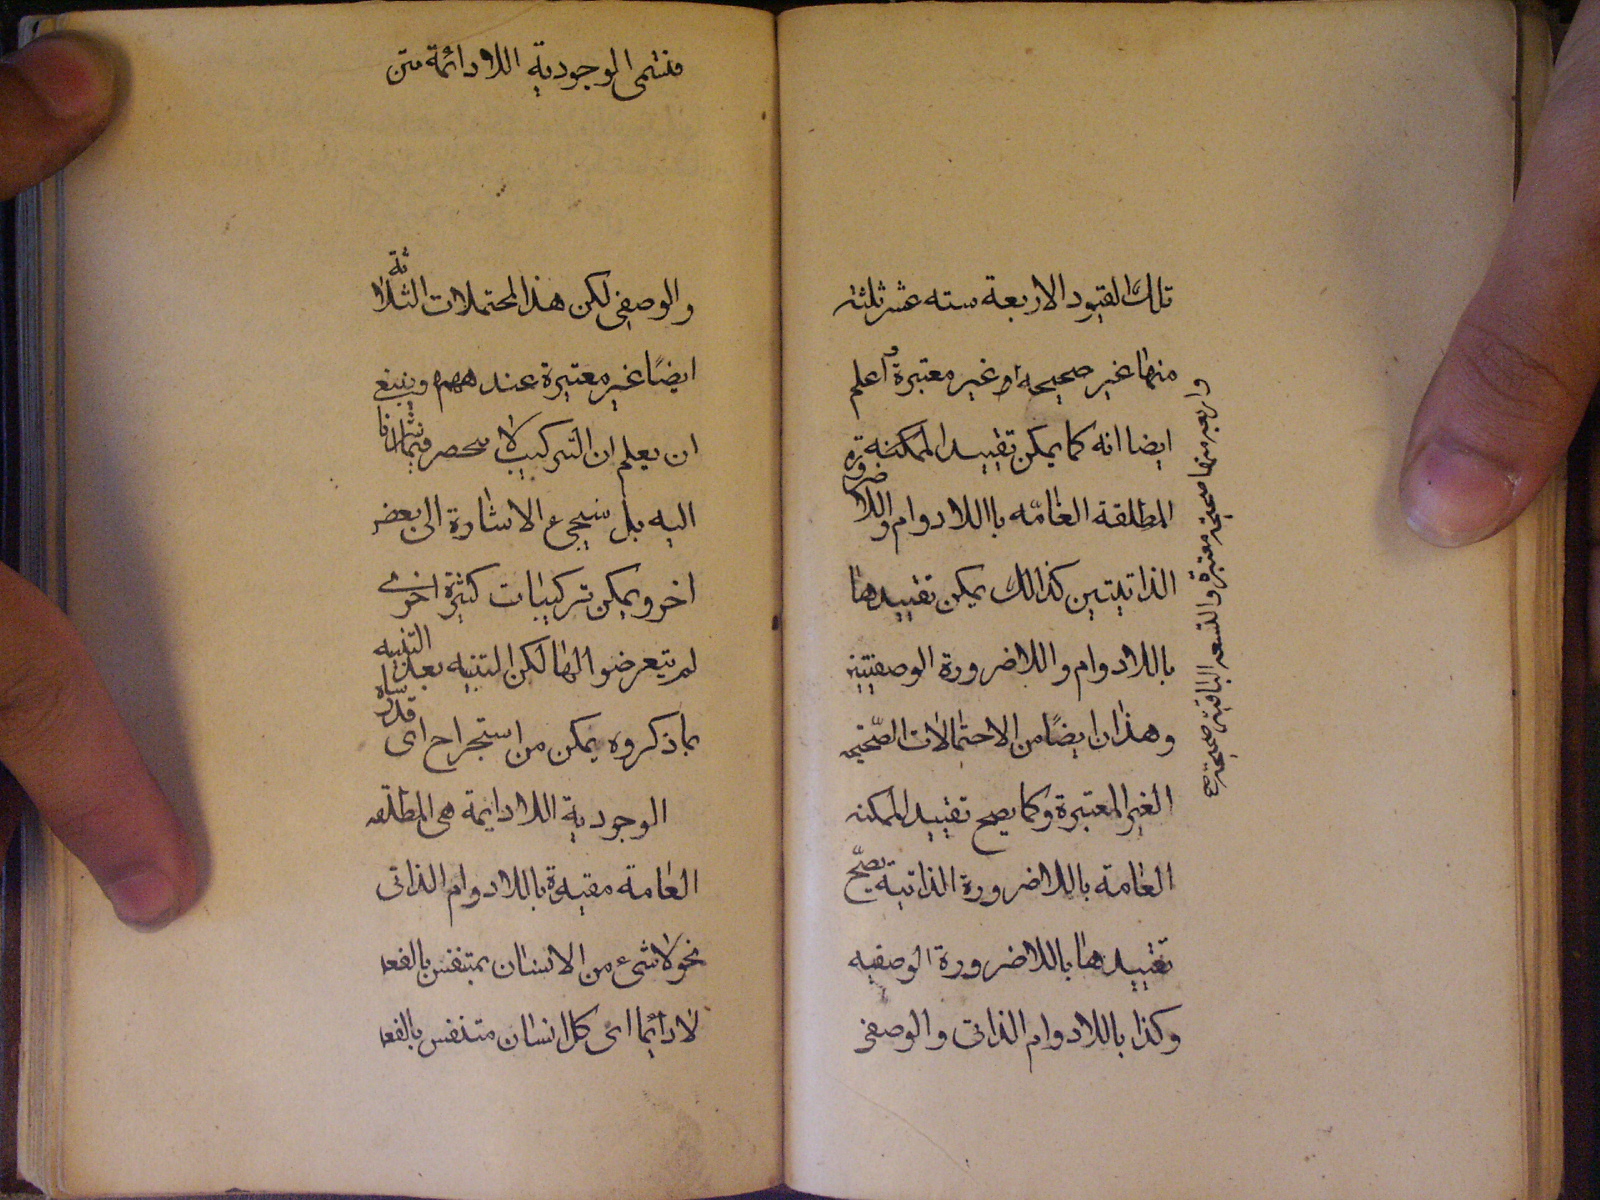 تلك القيود الاربعة سته عشر ثلثة
منها غير صحيحه او غير معتبرة و اعلم
ايضا انه كما يمكن تقييد الممكنة و
المطلقة العامّه باللادوام واللاضرورة
الذاتيتين كذالك يمكن تقييدها
باللادوام واللاضرورة الوصفيتين
وهذان ايضًا من الاحتمالات الصّحيحه
الغير المعتبرة وكما يصح تقييد الممكنه
العامة باللاضرورة الذاتية يصحّ
تقييدها باللاضرورة الوصفيه
وكذا باللادوام الذاتى والوصفى
واربعه منها صحيحة معتبرة والتسعه الباقية صحيحة
فتسمى الوجودية اللادائمة متن
والوصفى لكن هذا المحتملات الثّلاثة
ايضًا غير معتبرة عندهم وينبغى
ان يعلم ان التركيب لا ينحصر فيما اشرنا
اليه بل سيجىء الاشارة الى بعض
اخر ويمكن تركيبات كثيرة اخرى
لم يتعرضوا لها لكن التنبيه بعد التنبيه
بما ذكروه يمكن من استجراح اى قدر شاء
الوجودية اللادايمة هى المطلّقه
العامة مقيدة باللادوام الذاتى
نحو لا شىء من الانسان بمتنفس بالفعل
لا دائما اى كل انسان متنفس بالفعل